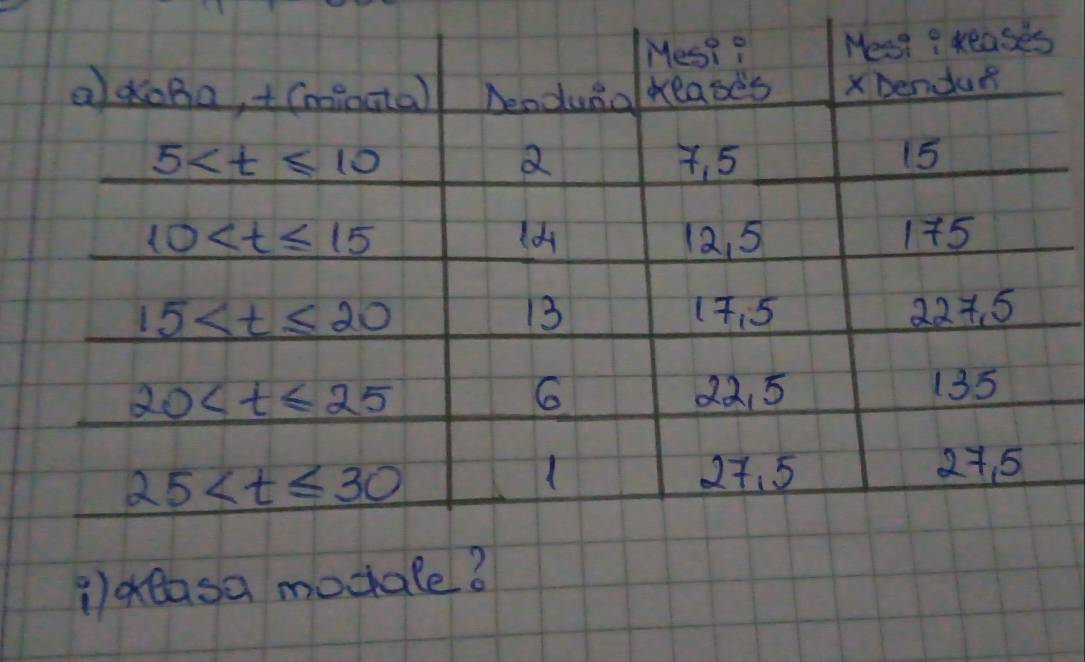 a) Koha, t (minuta) Denduria Mesi i klasës Mesi i klasës x Dendur
5 < t ≤ 10 2 7,5 15
10 < t ≤ 15 14 12,5 175
15 < t ≤ 20 13 17,5 227,5
20 < t ≤ 25 6 22,5 135
25 < t ≤ 30 1 27,5 27,5
i) Klasa modale?